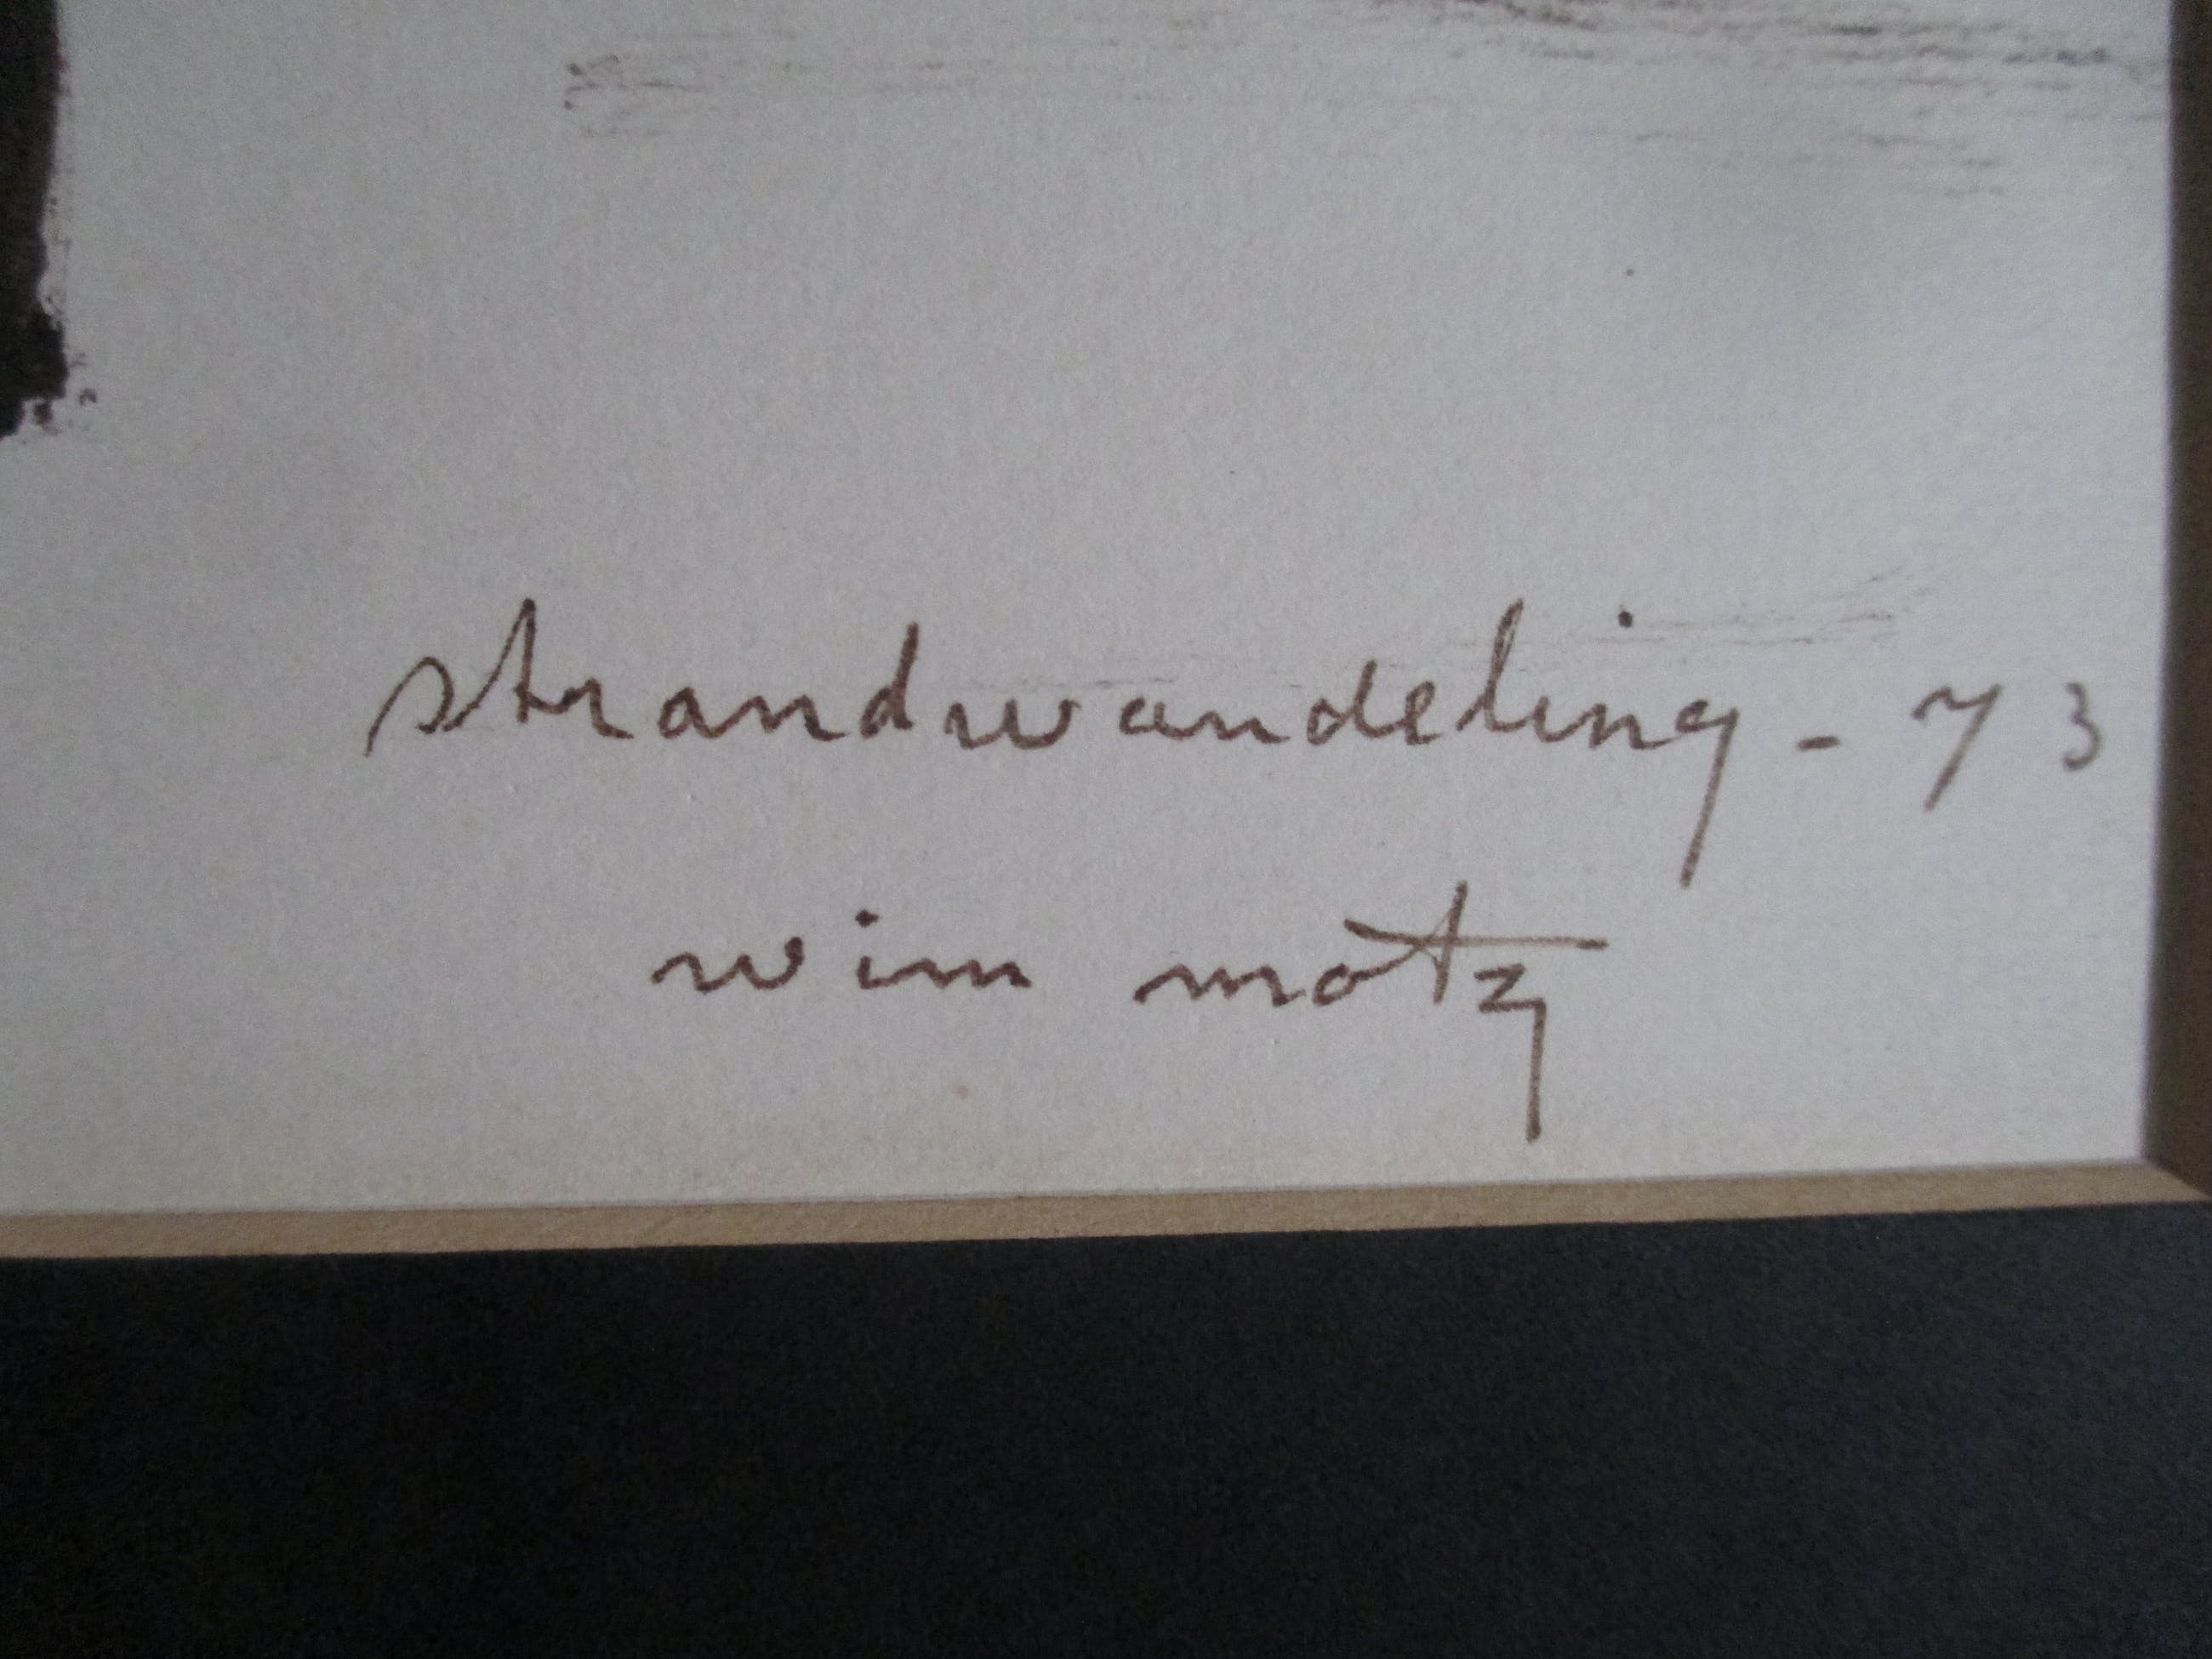 strandwandeling - 73
wim motz